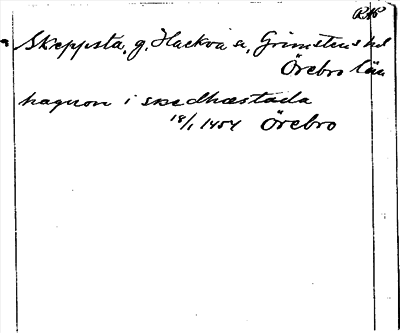 RAP
Skeppsta, g. Hackva sn, Grimstens hd
Örebro län
haquon i skedhæstada
18/1 1454 Örebro